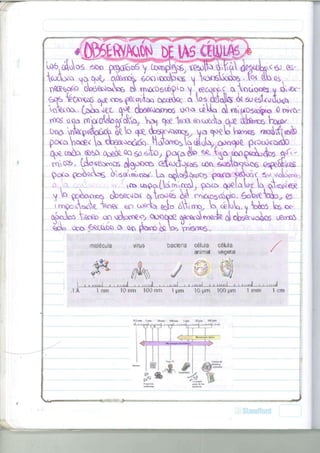 OBSERVACIÓN DE LAS CÉLULAS
Las células son pequeñas y complejas, resulta difícil descubrir su es-
tructura ya que, además, son incoloras y translúcidas. Por ello es
necesario observarlas al microscopio y recurrir a tinciones y diver-
sas técnicas que nos permitan acceder a los detalles de su estructura
interna. Cada vez que observamos una célula al microscopio o mira-
mos una microfotografía, hay que tener en cuenta que debemos hacer
una interpretación de lo que observamos, ya que lo hemos modificado
para hacer la observación. Matamos la célula, aunque procurando
que cada cosa quede en su sitio, para ello se fija con productos quí-
micos. Coloreamos algunas estructuras con sustancias específicas
para poderlas visualizar. La aplastamos para reducir su volumen,
a una capa (lámina), para que la luz la atraviese
y la podamos observar a través del microscopio. Sobre todo, es
importante tener en cuenta esto último, la célula, y todos los or-
gánulos tienen un volumen, aunque generalmente al observarlos vemos
solo una sección o un plano de los mismos.
molécula virus bacteria célula célula
animal vegetal
1 Å 1 nm 10 nm 100 nm 1 µm 10 µm 100 µm 1 mm 1 cm